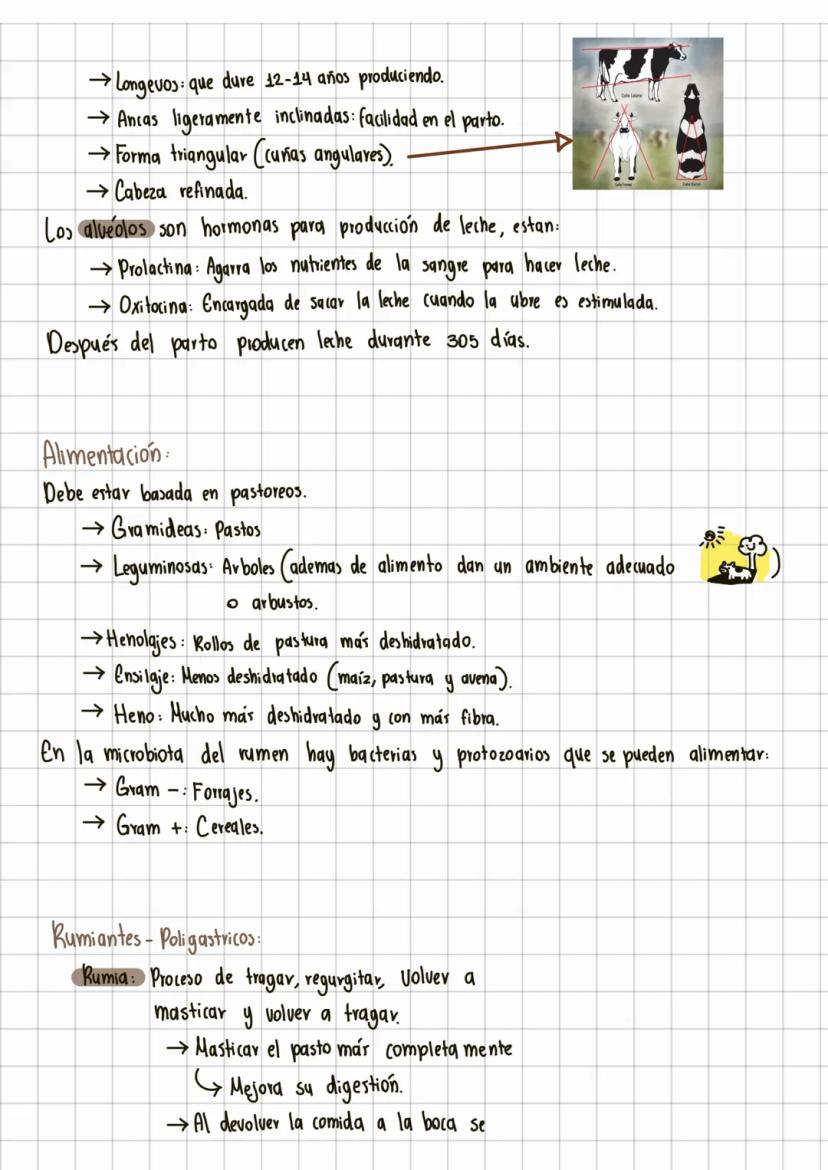 → Longevos: que dure 12-14 años produciendo.
→ Ancas ligeramente inclinadas: facilidad en el parto.
→ Forma triangular (cuñas angulares).
→ Cabeza refinada.
Los alvéolos son hormonas para producción de leche, estan:
→ Prolactina: Agarra los nutrientes de la sangre para hacer leche.
→ Oxitocina: Encargada de sacar la leche cuando la ubre es estimulada.
Después del parto producen leche durante 305 días.
Alimentación:
Debe estar basada en pastoreos.
→ Gramideas: Pastos
→ Leguminosas: Arboles (ademas de alimento dan un ambiente adecuado )
o arbustos.
→ Henolajes: Rollos de pastura más deshidratado.
→ Ensilaje: Menos deshidratado (maíz, pastura y avena).
→ Heno: Mucho más deshidratado y con más fibra.
En la microbiota del rumen hay bacterias y protozoarios que se pueden alimentar:
→ Gram -: Forrajes.
→ Gram +: Cereales.
Rumiantes - Poligastricos:
Rumia: Proceso de tragar, regurgitar, volver a
masticar y volver a tragar.
→ Masticar el pasto más completa mente
↳ Mejora su digestión.
→ Al devolver la comida a la boca se